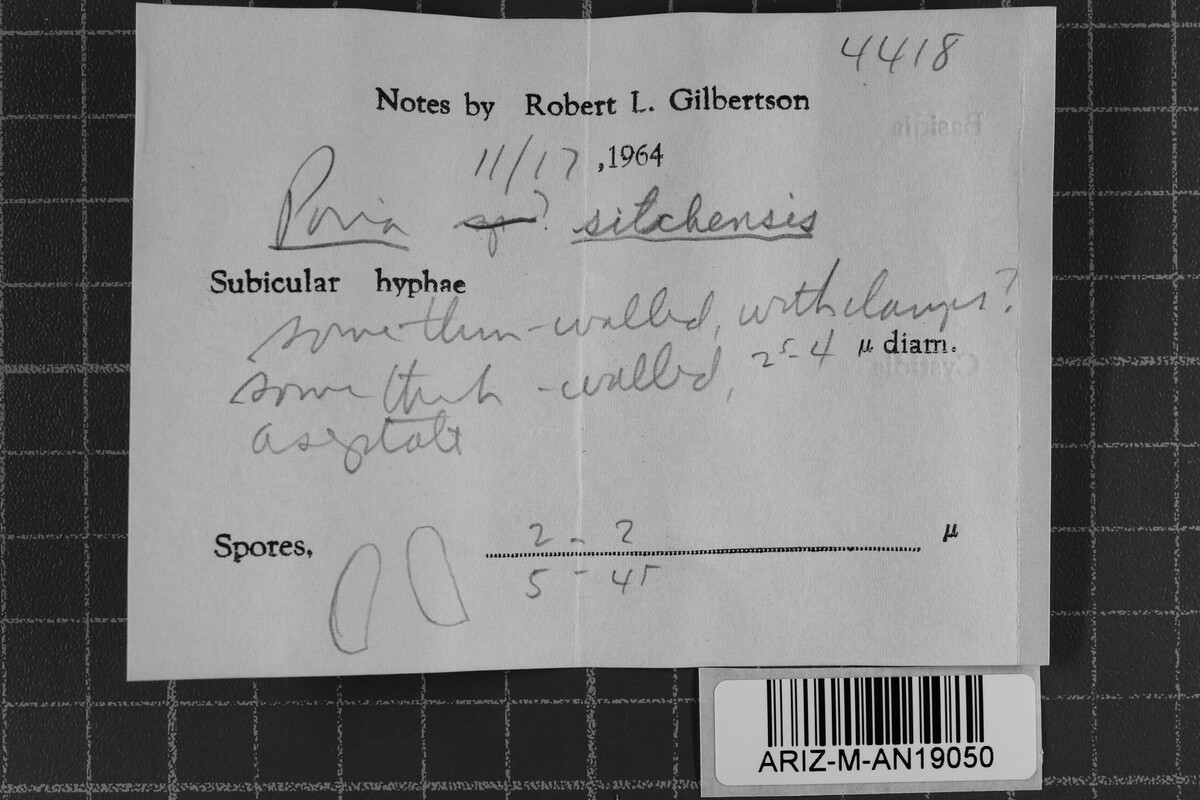 4418
Notes by Robert L. Gilbertson
11/17, 1964
Poria sp? sitchensis
Subicular hyphae
some thin-walled, with clamps?
some thick-walled, 25-4 µ diam.
aseptate
Spores, 2 - 2 µ
5 - 45
Basidia
Cystidia
ARIZ-M-AN19050